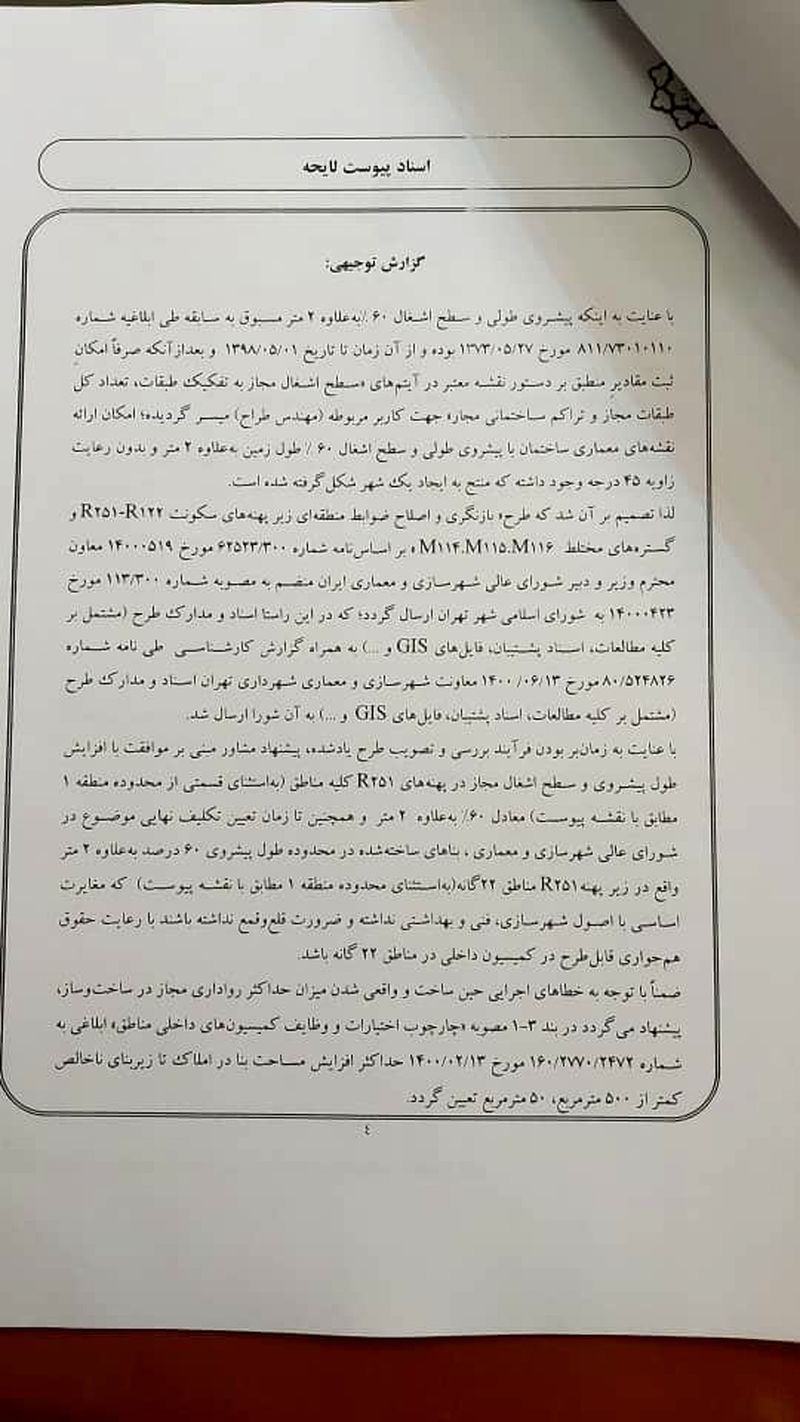 اسناد پیوست لایحه
گزارش توجیهی:
با عنایت به اینکه پیشروی طولی و سطح اشغال ۶۰ ٪به‌علاوه ۲ متر مسبوق به سابقه طی ابلاغیه شماره
۸۱۱/۷۳۰۱۰۱۱۰ مورخ ۱۳۷۳/۰۵/۲۷ بوده و از آن زمان تا تاریخ ۱۳۹۸/۰۵/۰۱ و بعدازآنکه صرفاً امکان
ثبت مقادیر منطبق بر دستور نقشه معتبر در آیتم‌های «سطح اشغال مجاز به تفکیک طبقات، تعداد کل
طبقات مجاز و تراکم ساختمانی مجاز» جهت کاربر مربوطه (مهندس طراح) میسر گردیده؛ امکان ارائه
نقشه‌های معماری ساختمان با پیشروی طولی و سطح اشغال ۶۰ ٪ طول زمین به‌علاوه ۲ متر و بدون رعایت
زاویه ۴۵ درجه وجود داشته که منتج به ایجاد یک شهر شکل‌گرفته شده است.
لذا تصمیم بر آن شد که طرح« بازنگری و اصلاح ضوابط منطقه‌ای زیر پهنه‌های سکونت R۲۵۱-R۱۲۲ و
گستره‌های مختلط M۱۱۴.M۱۱۵.M۱۱۶ » بر اساس‌نامه شماره ۶۲۵۲۳/۳۰۰ مورخ ۱۴۰۰۰۵۱۹ معاون
محترم وزیر و دبیر شورای عالی شهرسازی و معماری ایران منضم به مصوبه شماره ۱۱۳/۳۰۰ مورخ
۱۴۰۰۰۴۲۳ به شورای اسلامی شهر تهران ارسال گردد؛ که در این راستا اسناد و مدارک طرح (مشتمل بر
کلیه مطالعات، اسناد پشتیبان، فایل‌های GIS و ...) به همراه گزارش کارشناسی طی نامه شماره
۸۰/۵۲۴۸۲۶ مورخ ۱۴۰۰/۰۶/۱۳ معاونت شهرسازی و معماری شهرداری تهران اسناد و مدارک طرح
(مشتمل بر کلیه مطالعات، اسناد پشتیبان، فایل‌های GIS و ...) به آن شورا ارسال شد.
با عنایت به زمان‌بر بودن فرآیند بررسی و تصویب طرح یادشده، پیشنهاد مشاور مبنی بر موافقت با افزایش
طول پیشروی و سطح اشغال مجاز در پهنه‌های R۲۵۱ کلیه مناطق (به‌استثنای قسمتی از محدوده منطقه ۱
مطابق با نقشه پیوست) معادل ۶۰٪ به‌علاوه ۲ متر و همچنین تا زمان تعیین تکلیف نهایی موضوع در
شورای عالی شهرسازی و معماری ، بناهای ساخته‌شده در محدوده طول پیشروی ۶۰ درصد به‌علاوه ۲ متر
واقع در زیر پهنه R۲۵۱ مناطق ۲۲گانه(به‌استثنای محدوده منطقه ۱ مطابق با نقشه پیوست) که مغایرت
اساسی با اصول شهرسازی، فنی و بهداشتی نداشته و ضرورت قلع‌وقمع نداشته باشند با رعایت حقوق
هم‌جواری قابل‌طرح در کمیسیون داخلی در مناطق ۲۲ گانه باشد.
ضمناً با توجه به خطاهای اجرایی حین ساخت و واقعی شدن میزان حداکثر رواداری مجاز در ساخت‌وساز،
پیشنهاد می‌گردد در بند ۳-۱ مصوبه «چارچوب اختیارات و وظایف کمیسیون‌های داخلی مناطق» ابلاغی به
شماره ۱۶۰/۲۷۷۰/۲۴۷۲ مورخ ۱۴۰۰/۰۲/۱۳ حداکثر افزایش مساحت بنا در املاک تا زیربنای ناخالص
کمتر از ۵۰۰ مترمربع، ۵۰ مترمربع تعیین گردد.
٤